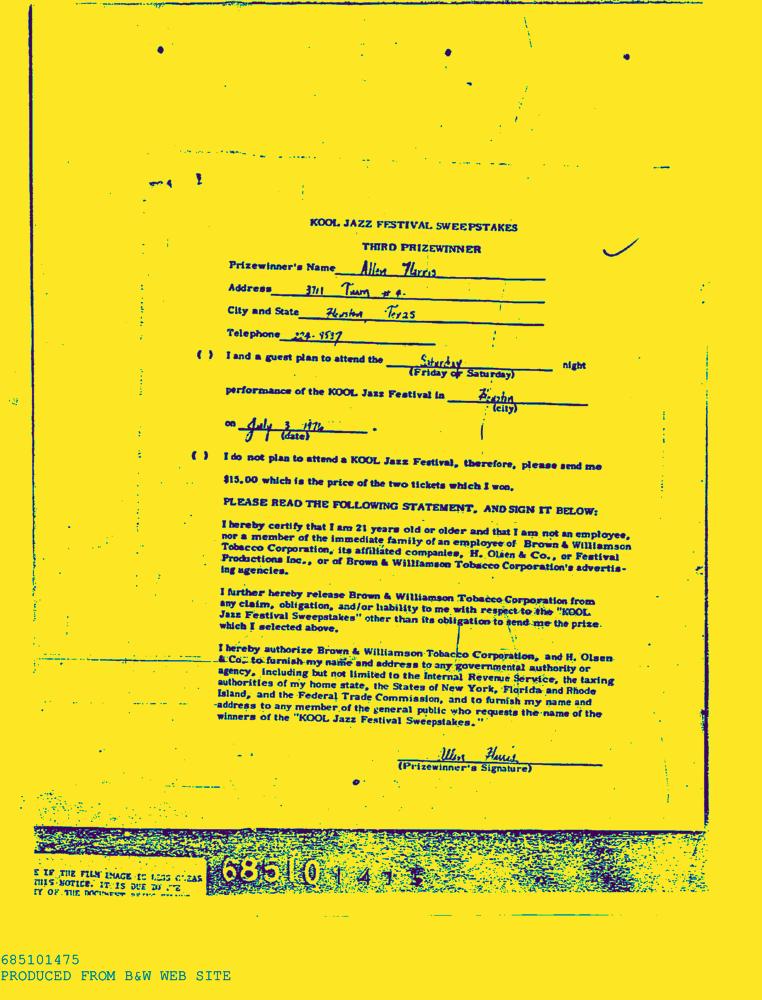 KOOL JAZZ FESTIVAL SWEEPSTAKES
THIRD PRIZEWINNER
Prizewinner's Name Allen Harris
Address 3711 Tuam # 4
City and State Houston Texas
Telephone 224-9537
( ) I and a guest plan to attend the Saturday night
(Friday or Saturday)
performance of the KOOL Jazz Festival in Houston
(city)
on July 3 1976 .
(date)
( ) I do not plan to attend a KOOL Jazz Festival, therefore, please send me
$15.00 which is the price of the two tickets which I won.
PLEASE READ THE FOLLOWING STATEMENT, AND SIGN IT BELOW:
I hereby certify that I am 21 years old or older and that I am not an employee,
nor a member of the immediate family of an employee of Brown & Williamson
Tobacco Corporation, its affiliated companies, H. Olsen & Co., or Festival
Productions Inc., or of Brown & Williamson Tobacco Corporation's advertis-
ing agencies.
I further hereby release Brown & Williamson Tobacco Corporation from
any claim, obligation, and/or liability to me with respect to the "KOOL
Jazz Festival Sweepstakes" other than its obligation to send me the prize
which I selected above.
I hereby authorize Brown & Williamson Tobacco Corporation, and H. Olsen
& Co. to furnish my name and address to any governmental authority or
agency, including but not limited to the Internal Revenue Service, the taxing
authorities of my home state, the States of New York, Florida and Rhode
Island, and the Federal Trade Commission, and to furnish my name and
address to any member of the general public who requests the name of the
winners of the "KOOL Jazz Festival Sweepstakes."
Allen Harris
(Prizewinner's Signature)
E IF THE FILM IMAGE IS LESS CLEAR
THIS NOTICE. IT IS DUE TO
TY OF THE DOCUMENT
685101475
685101475
PRODUCED FROM B&W WEB SITE